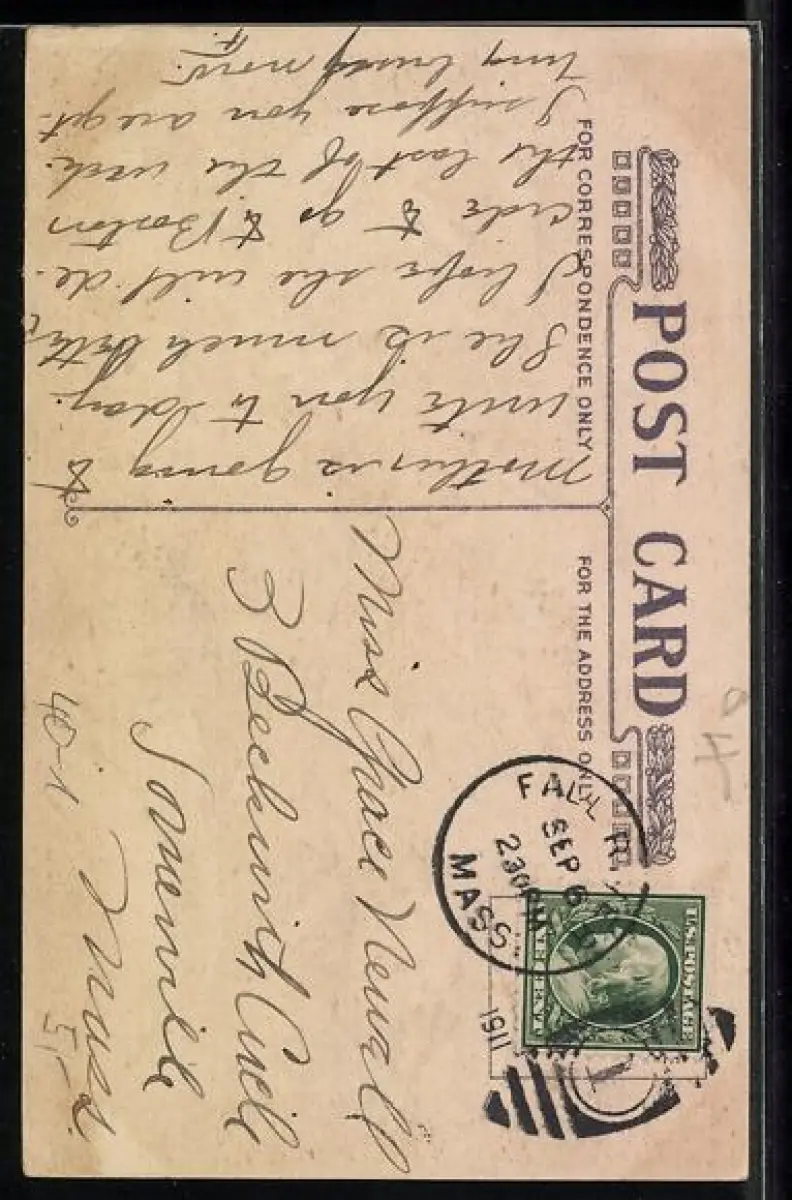 POST CARD
FOR CORRESPONDENCE ONLY
FOR THE ADDRESS ONLY
Mother is going to
write you to day.
She is much better
I hope she will de-
cide to go to Boston
the last of the week.
I suppose you are get-
ting busy now.
F.
Miss Grace Newell
3 Beckwith Circle
Somerville
Mass.
40-1
51-
FALL RIVER
SEP 6
230PM
MASS.
1911
1
U.S. POSTAGE
ONE CENT